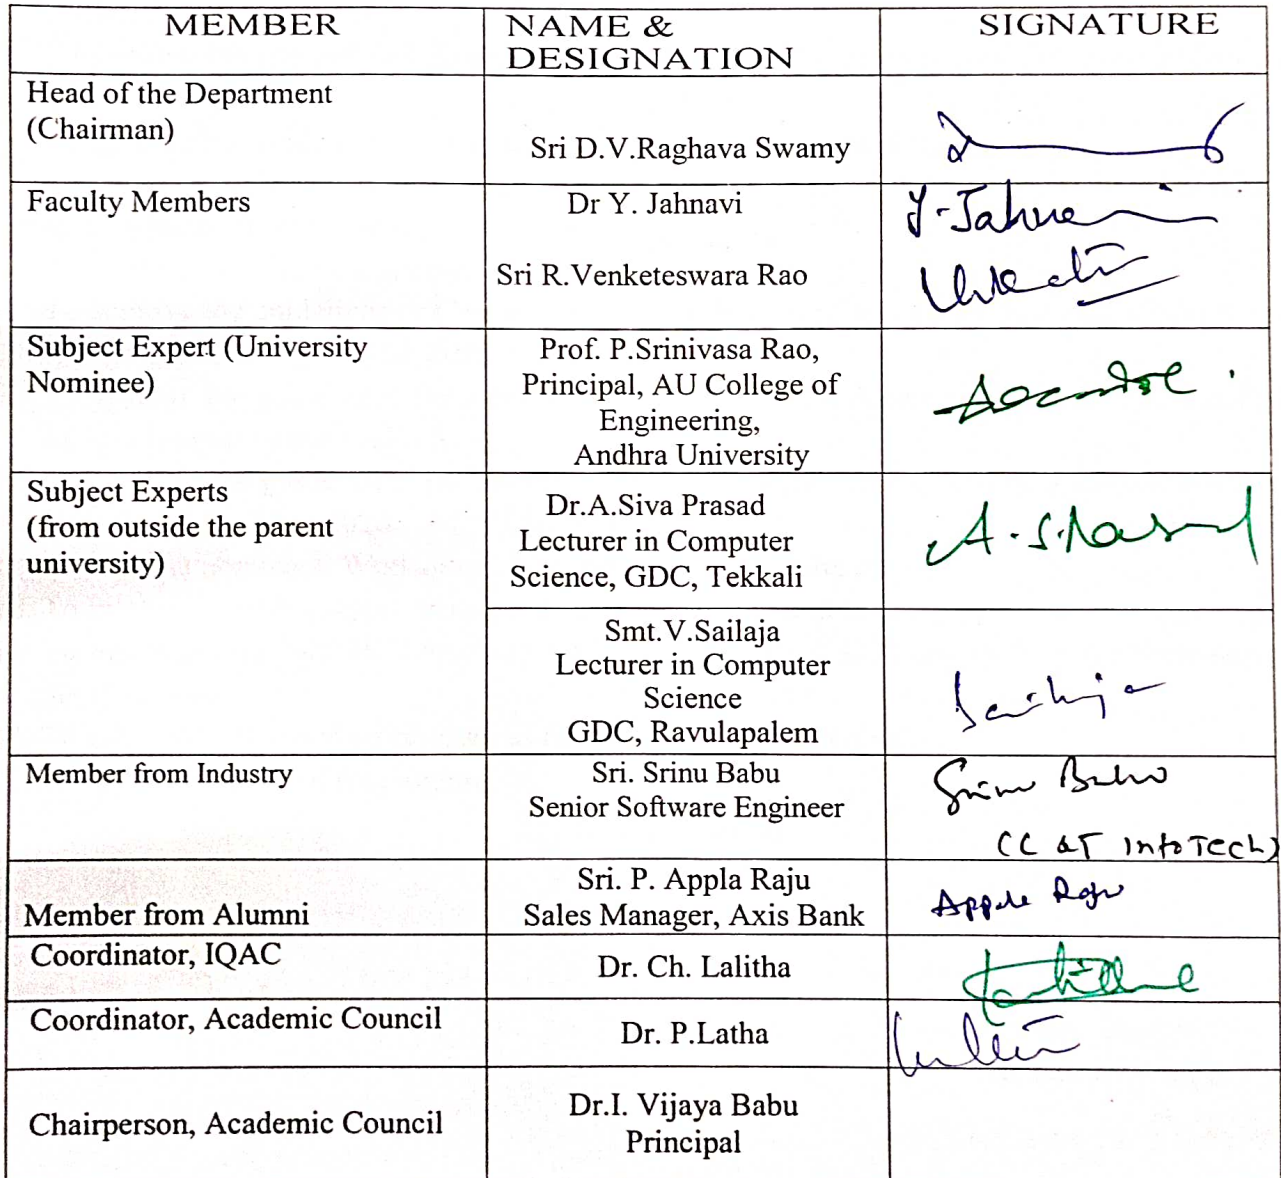 MEMBER NAME & SIGNATURE
DESIGNATION
Head of the Department
(Chairman)
Sri D.V.Raghava Swamy
Faculty Members Dr Y. Jahnavi
Y. Jahnavi
Sri R.Venketeswara Rao
Subject Expert (University
Nominee)
Prof. P.Srinivasa Rao,
Principal, AU College of
Engineering,
Andhra University
Subject Experts
(from outside the parent
university)
Dr.A.Siva Prasad
Lecturer in Computer
Science, GDC, Tekkali
A.S.Prasad
Smt.V.Sailaja
Lecturer in Computer
Science
GDC, Ravulapalem
Sailaja
Member from Industry
Sri. Srinu Babu
Senior Software Engineer
Srinu Babu
(CC &T InfoTech)
Member from Alumni
Sri. P. Appla Raju
Sales Manager, Axis Bank
Appala Raju
Coordinator, IQAC
Dr. Ch. Lalitha
Coordinator, Academic Council
Dr. P.Latha
Chairperson, Academic Council
Dr.I. Vijaya Babu
Principal